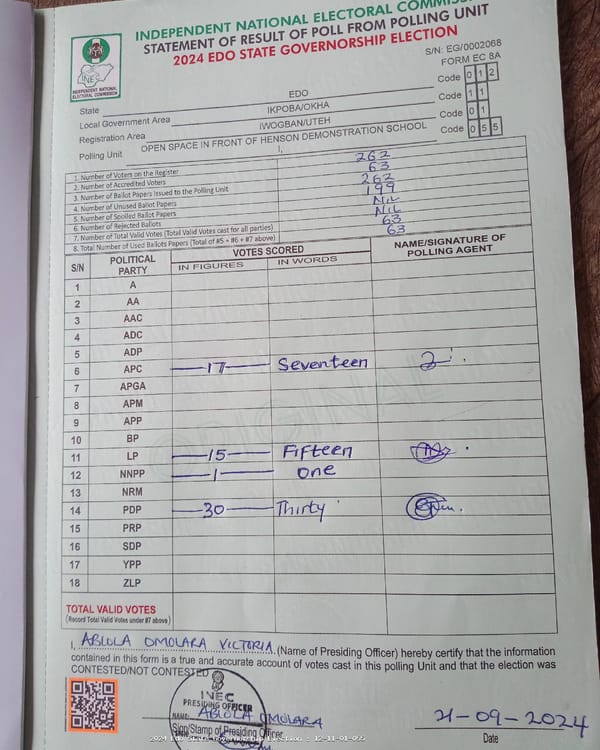 INDEPENDENT NATIONAL ELECTORAL COMMISS
STATEMENT OF RESULT OF POLL FROM POLLING UNIT
2024 EDO STATE GOVERNORSHIP ELECTION
INEC
INDEPENDENT NATIONAL
ELECTORAL COMMISSION
S/N: EG/0002068
FORM EC 8A
State EDO Code 0 1 2
Local Government Area IKPOBA/OKHA Code 1 1
Registration Area IWOGBAN/UTEH Code 0 1
Polling Unit OPEN SPACE IN FRONT OF HENSON DEMONSTRATION SCHOOL I, Code 0 5 5
1. Number of Voters on the Register 262
2. Number of Accredited Voters 63
3. Number of Ballot Papers Issued to the Polling Unit 262
4. Number of Unused Ballot Papers 199
5. Number of Spoiled Ballot Papers NIL
6. Number of Rejected Ballots NIL
7. Number of Total Valid Votes (Total Valid Votes cast for all parties) 63
8. Total Number of Used Ballots Papers (Total of #5 + #6 + #7 above) 63
S/N POLITICAL PARTY VOTES SCORED NAME/SIGNATURE OF POLLING AGENT
IN FIGURES IN WORDS
1 A
2 AA
3 AAC
4 ADC
5 ADP
6 APC 17 Seventeen
7 APGA
8 APM
9 APP
10 BP
11 LP 15 Fifteen
12 NNPP 1 one
13 NRM
14 PDP 30 Thirty
15 PRP
16 SDP
17 YPP
18 ZLP
TOTAL VALID VOTES
(Record Total Valid Votes under #7 above)
I, ABIOLA OMOLARA VICTORIA (Name of Presiding Officer) hereby certify that the information
contained in this form is a true and accurate account of votes cast in this polling Unit and that the election was
CONTESTED/NOT CONTESTED
INEC
PRESIDING OFFICER
NAME: ABIOLA OMOLARA
Sign/Stamp of Presiding Officer
21-09-2024
Date